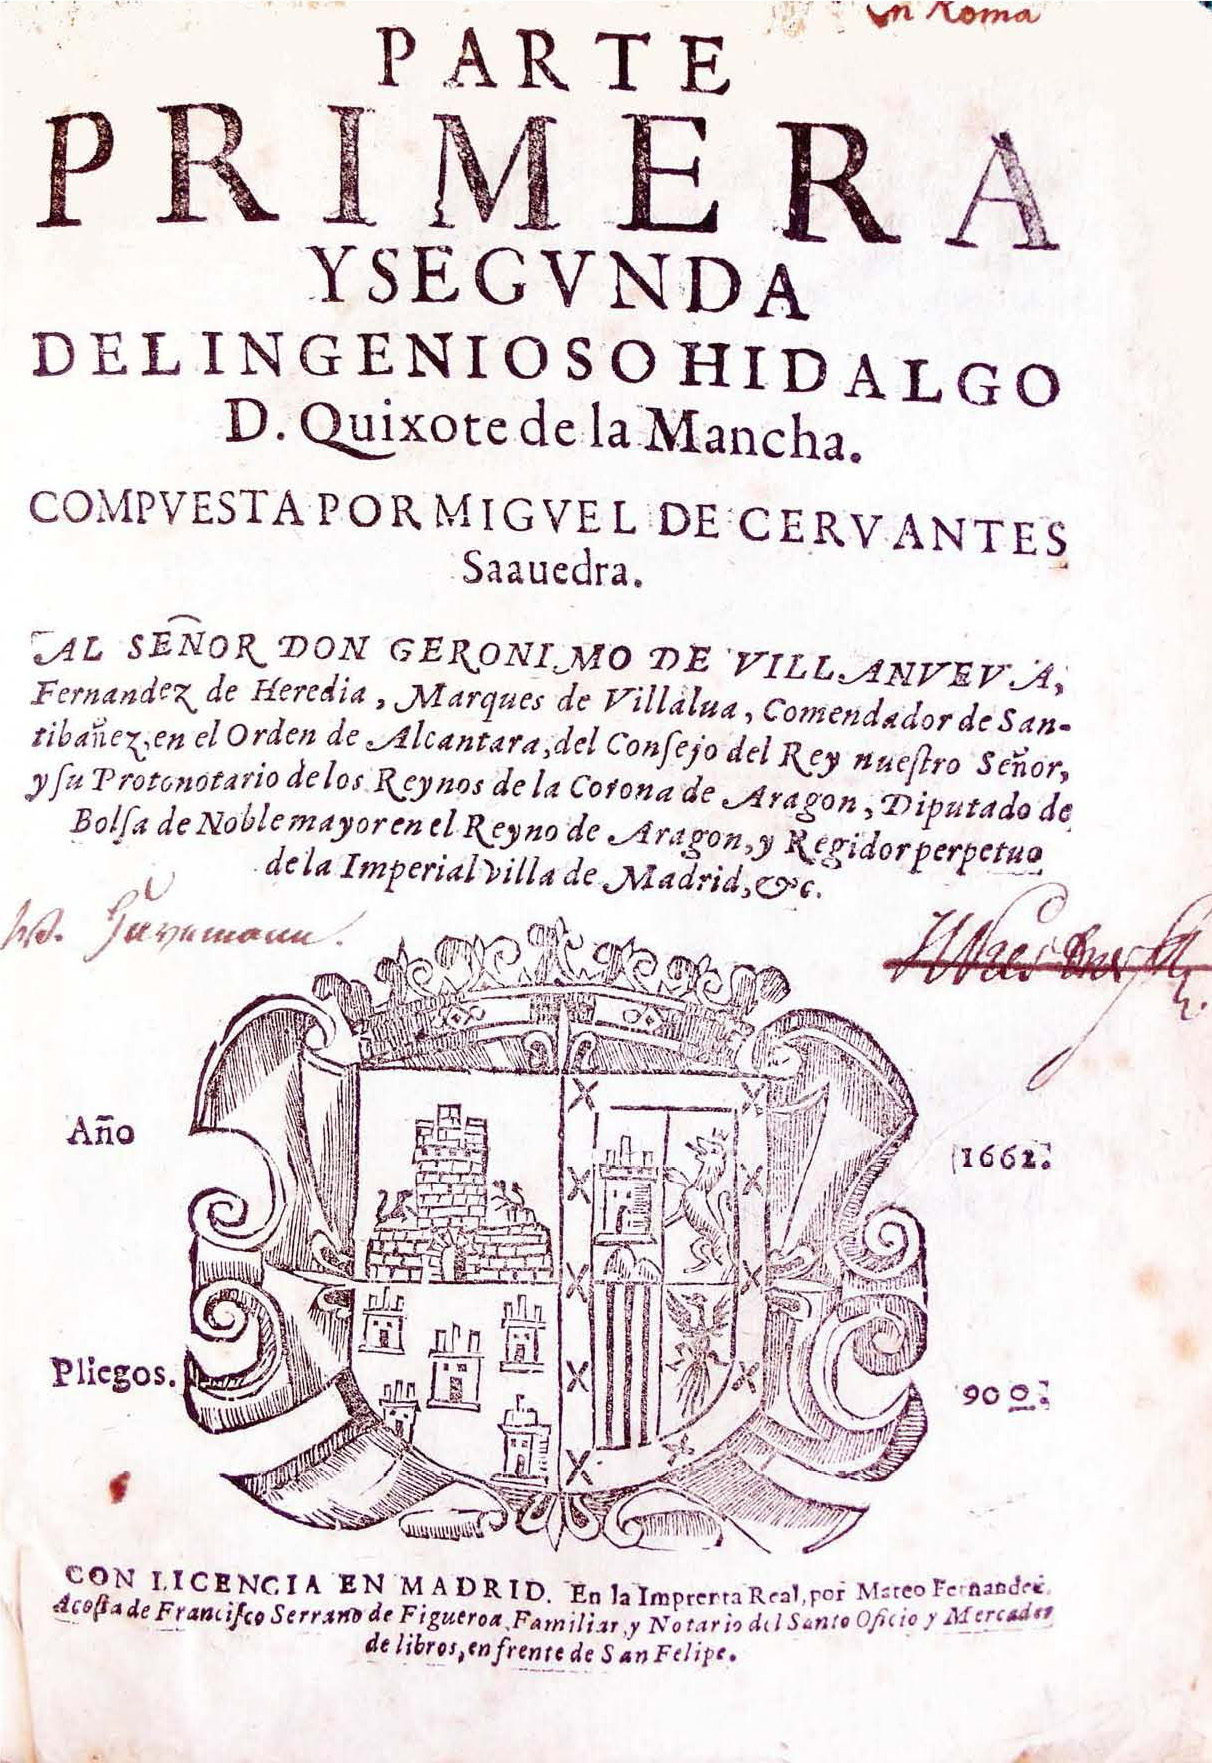 en Roma
PARTE
PRIMERA
Y SEGVNDA
DEL INGENIOSO HIDALGO
D. Quixote de la Mancha.
COMPVESTA POR MIGVEL DE CERVANTES
Saauedra.
AL SEÑOR DON GERONIMO DE VILLANVEVA,
Fernandez de Heredia, Marques de Villalua, Comendador de San-
tibañez, en el Orden de Alcantara, del Consejo del Rey nuestro Señor,
y su Protonotario de los Reynos de la Corona de Aragon, Diputado de
Bolsa de Noble mayor en el Reyno de Aragon, y Regidor perpetuo
de la Imperial villa de Madrid, &c.
Año
1662.
Pliegos.
90 0.
CON LICENCIA EN MADRID. En la Imprenta Real, por Mateo Fernandez.
Acosta de Francisco Serrano de Figueroa, Familiar, y Notario del Santo Oficio y Mercader
de libros, enfrente de San Felipe.